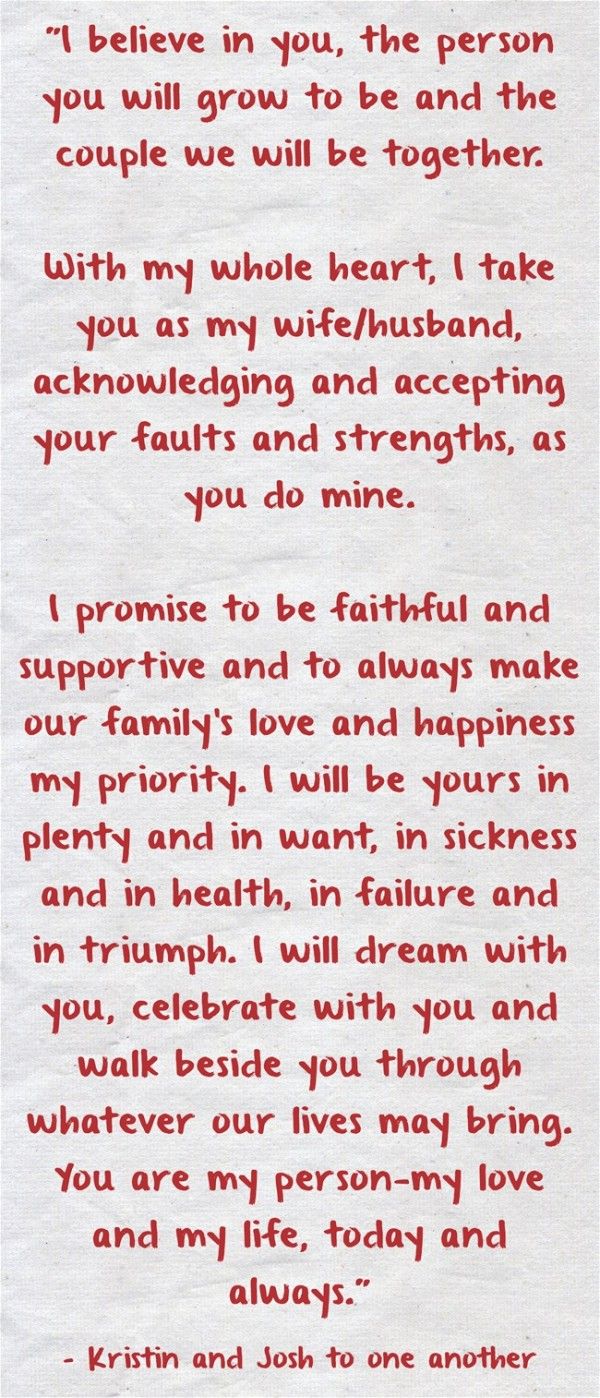 "I believe in you, the person
you will grow to be and the
couple we will be together.
With my whole heart, I take
you as my wife/husband,
acknowledging and accepting
your faults and strengths, as
you do mine.
I promise to be faithful and
supportive and to always make
our family's love and happiness
my priority. I will be yours in
plenty and in want, in sickness
and in health, in failure and
in triumph. I will dream with
you, celebrate with you and
walk beside you through
whatever our lives may bring.
You are my person-my love
and my life, today and
always."
- Kristin and Josh to one another